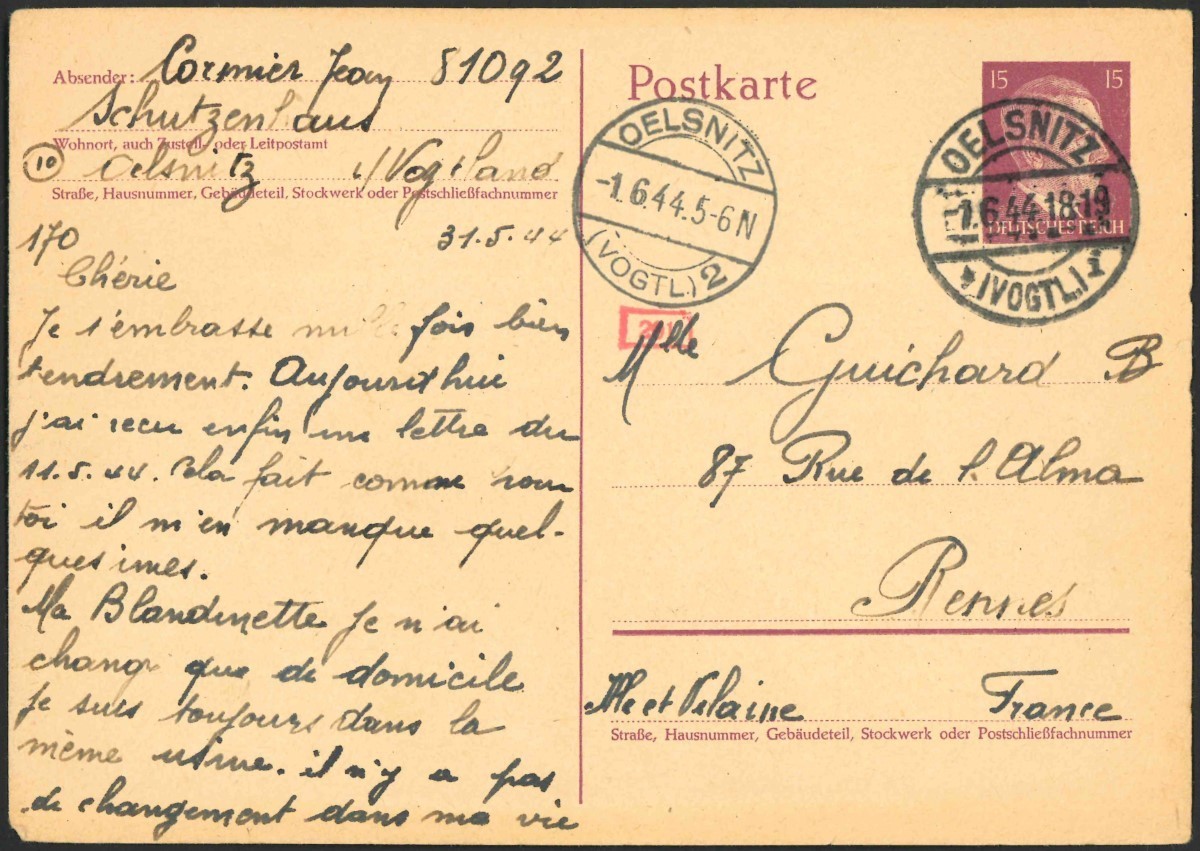 Absender: Cormier Jean 81092
Schutzenhaus
Wohnort, auch Zustell- oder Leitpostamt
10 Oelsnitz i/Vogtland
Straße, Hausnummer, Gebäudeteil, Stockwerk oder Postschließfachnummer
170 31.5.44
Chérie
Je t'embrasse mille fois bien
tendrement. Aujourd'hui
j'ai recu enfin une lettre du
11.5.44. Cela fait comme pour
toi il m'en manque quel-
ques imes.
Ma Blandinette je n'ai
chang que de domicile
je suis toujours dans la
même usine. il n'y a pas
de changement dans ma vie
Postkarte
15 15
DEUTSCHES REICH
OELSNITZ
-1.6.44.5-6N
(VOGTL.) 2
OELSNITZ
1.6.44.18-19
(VOGTL.)
Mlle Guichard B
87 Rue de l'Alma
Rennes
Ille et Vilaine France
Straße, Hausnummer, Gebäudeteil, Stockwerk oder Postschließfachnummer